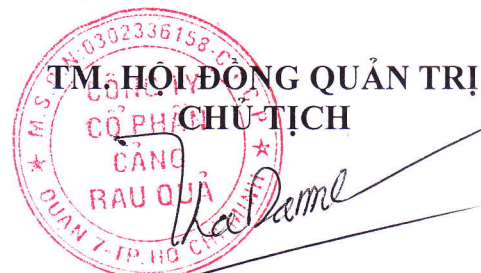 TM. HỘI ĐỒNG QUẢN TRỊ
CHỦ TỊCH
M.S.D.N:0302336158-C.T.C.P
CÔNG TY
CỔ PHẦN
CẢNG
RAU QUẢ
QUẬN 7-TP.HỒ CHÍ MINH